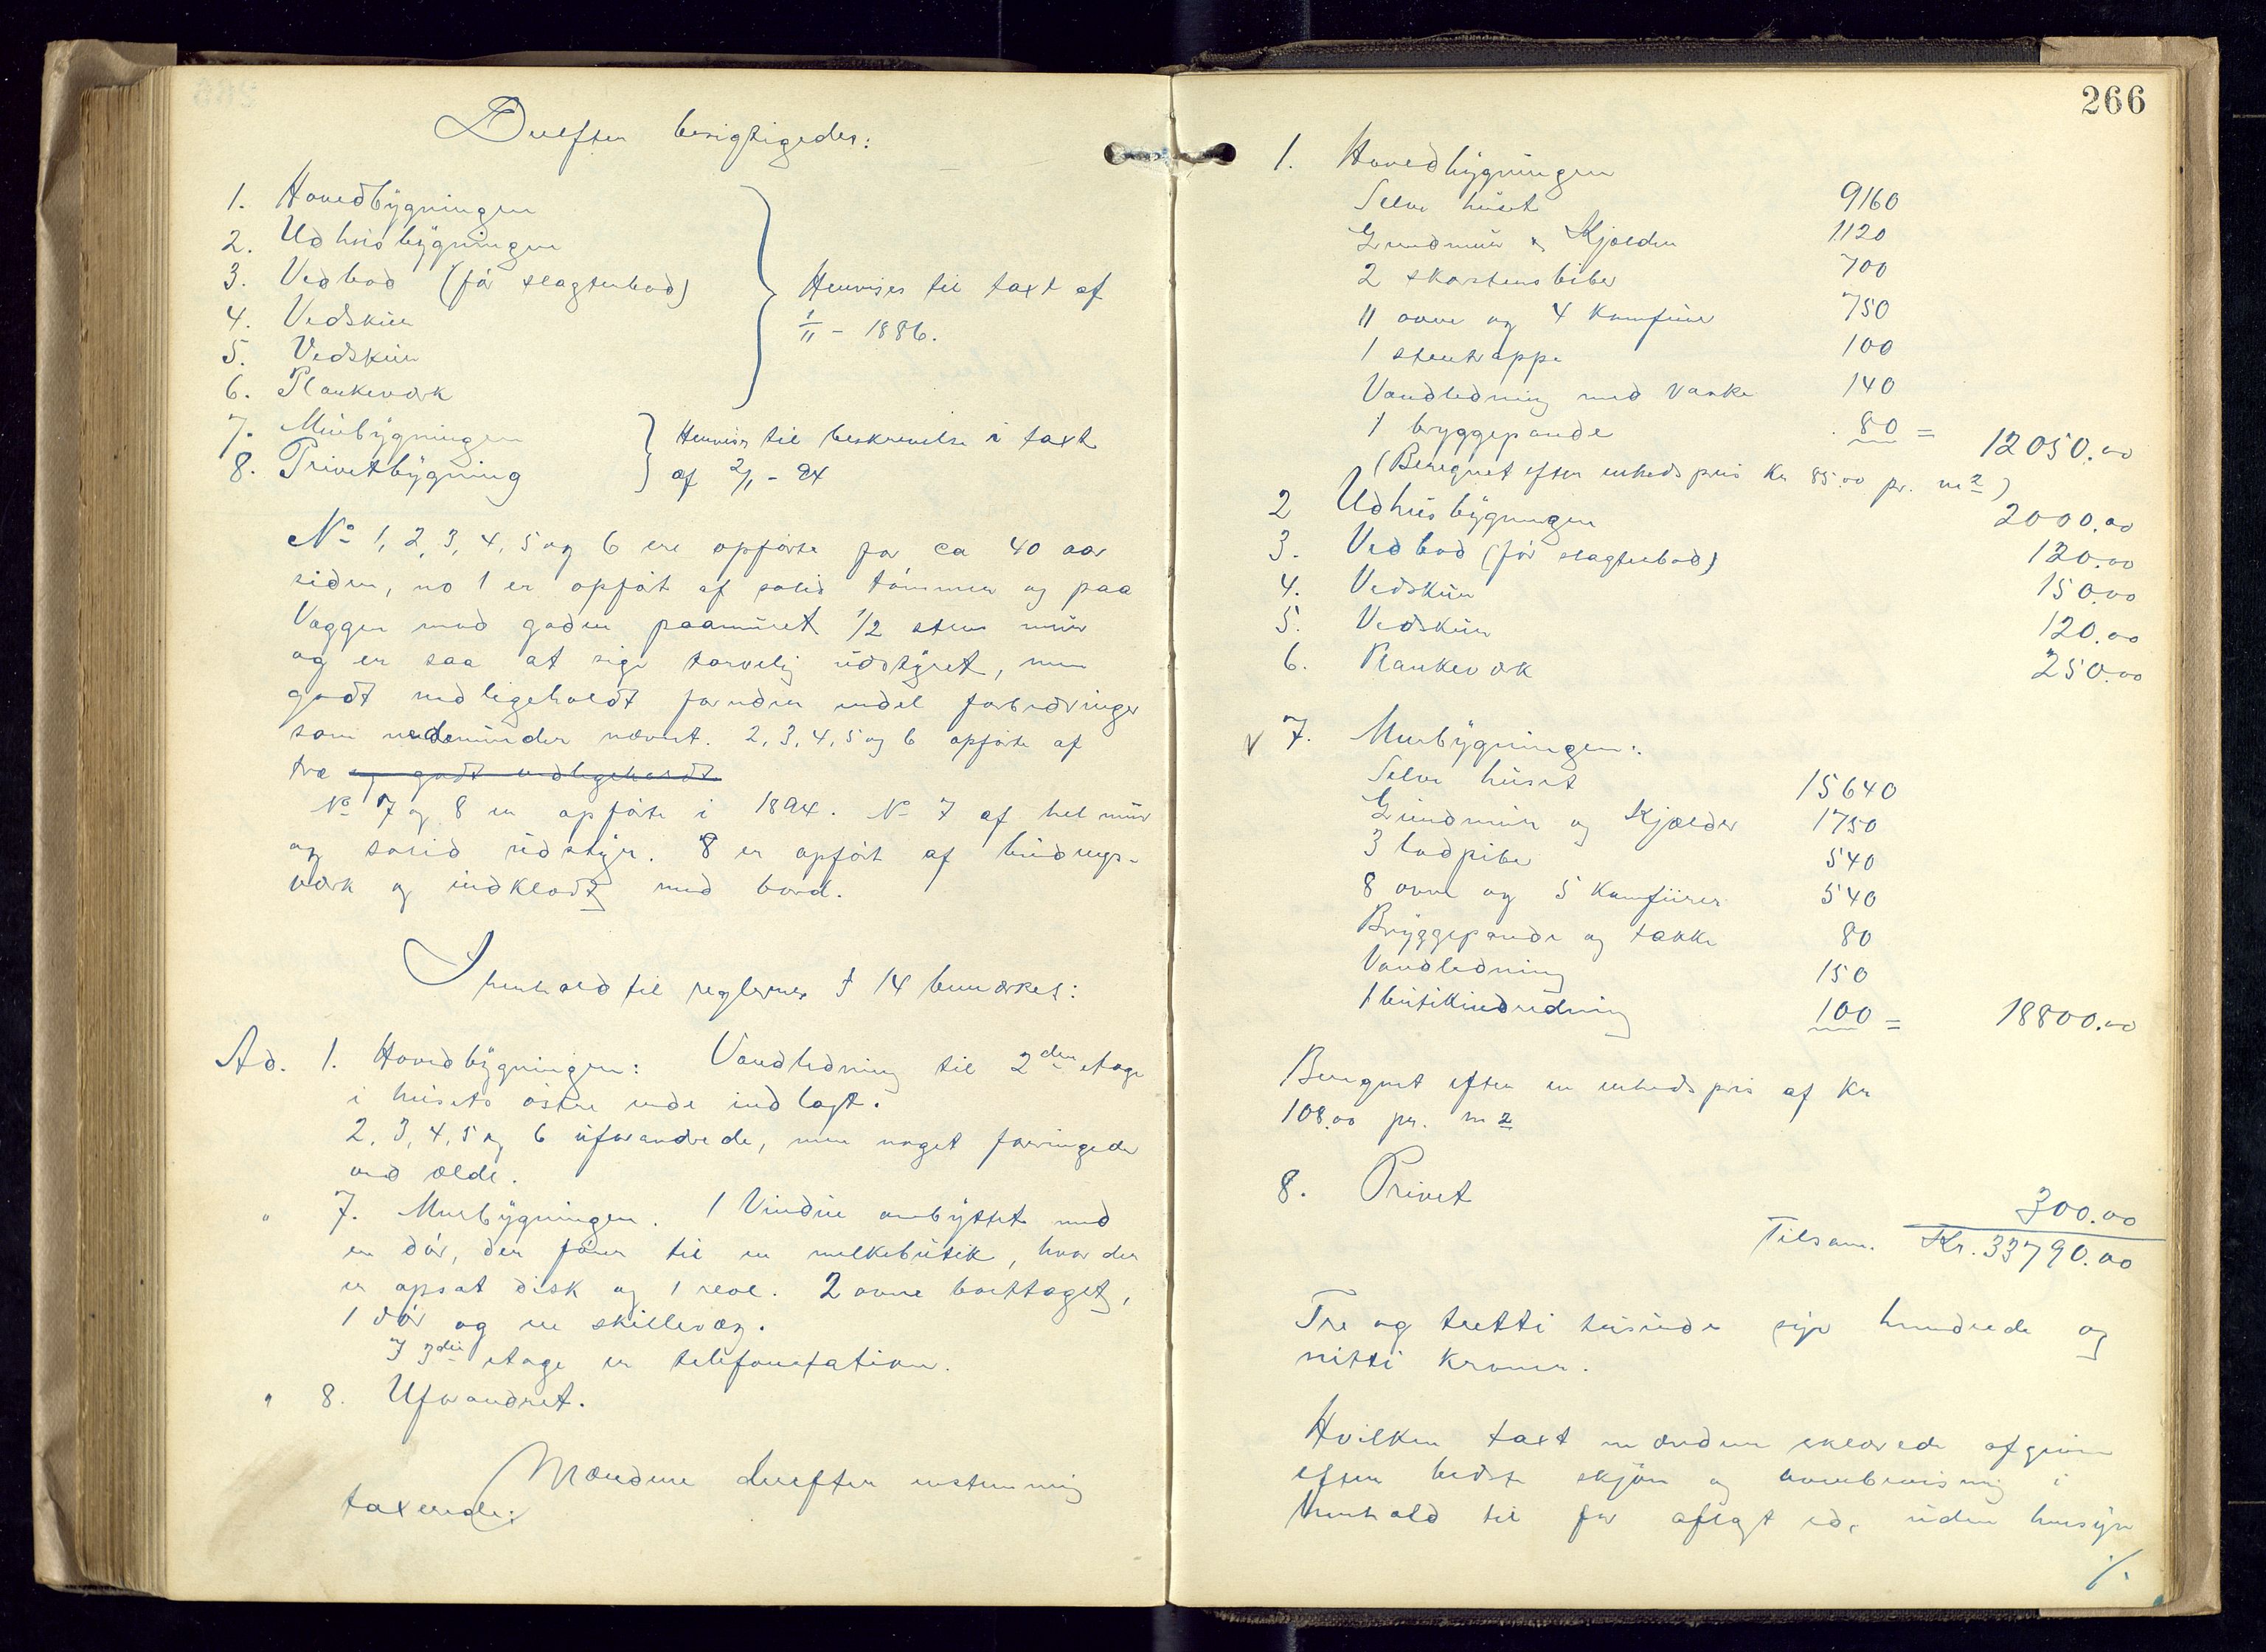 Derefter besigtigedes:
1. Hovedbygningen
2. Udhusbygningen
3. Vedbod (før slagterbod)
4. Vedskur
5. Vedskur
6. Plankeværk
Henvises til taxt af
1/11 - 1886.
7. Murbygningen
8. Privetbygning
Henvises til beskrivelse i taxt
af 2/1 - 94
No 1, 2, 3, 4, 5 og 6 ere opførte for ca 40 aar
siden, no 1 er opført af solid tømmer og paa
Vægger mod gaden paamuret 1/2 stens mur
og er saa at sige tarvelig udstyret, men
godt vedligeholdt foruden endel forbedringer
som nedenunder nævnt. 2, 3, 4, 5 og 6 opførte af
træ og godt vedligeholdt
No 7 og 8 er opførte i 1894. No 7 af hel mur
og solid udstyr. 8 er opført af bindings-
værk og indklædt med bord.
I henhold til reglernes § 14 bemærkes:
Ad. 1. Hovedbygningen: Vandledning til 2den etage
i husets østre ende indlagt.
2, 3, 4, 5 og 6 uforandrede, men noget forringede
ved ælde.
" 7. Murbygningen. 1 Vindue ombyttet med
en dør, der fører til en melkebutik, hvor der
er opsat disk og 1 reol. 2 ovne borttaget,
1 dør og en skillevæg.
I 3die etage er telefonstation.
" 8. Uforandret.
Mændene derefter enstemmig
taxerede:
266
1. Hovedbygningen
Selve huset 9160
Grundmur & Kjælder 1120
2 skorstenspiber 700
11 ovne og 4 Komfurer 750
1 stentrappe 100
Vandledning med vaske 140
1 bryggepande 80 = 12050.00
(Beregnet efter enhedspris Kr 85.00 pr. m2)
2 Udhusbygningen 2000.00
3. Vedbod (før slagterbod) 120.00
4. Vedskur 150.00
5. Vedskur 120.00
6. Plankeværk 250.00
V 7. Murbygningen:
Selve huset 15640
Grundmur og Kjælder 1750
3 lodpiber 540
8 ovne og 5 Komfurer 540
Bryggepande og takke 80
Vandledning 150
1 butikindredning 100 = 18800.00
Beregnet efter en enhedspris af Kr
108.00 pr. m2
8. Privet 300.00
Tilsam. Kr. 33790.00
Tre og tretti tusinde syv hundrede og
nitti Kroner.
Hvilken taxt mændene erklærede afgiven
efter bedste skjøn og overbevisning i
henhold til før aflagt ed, uden hensyn
./.